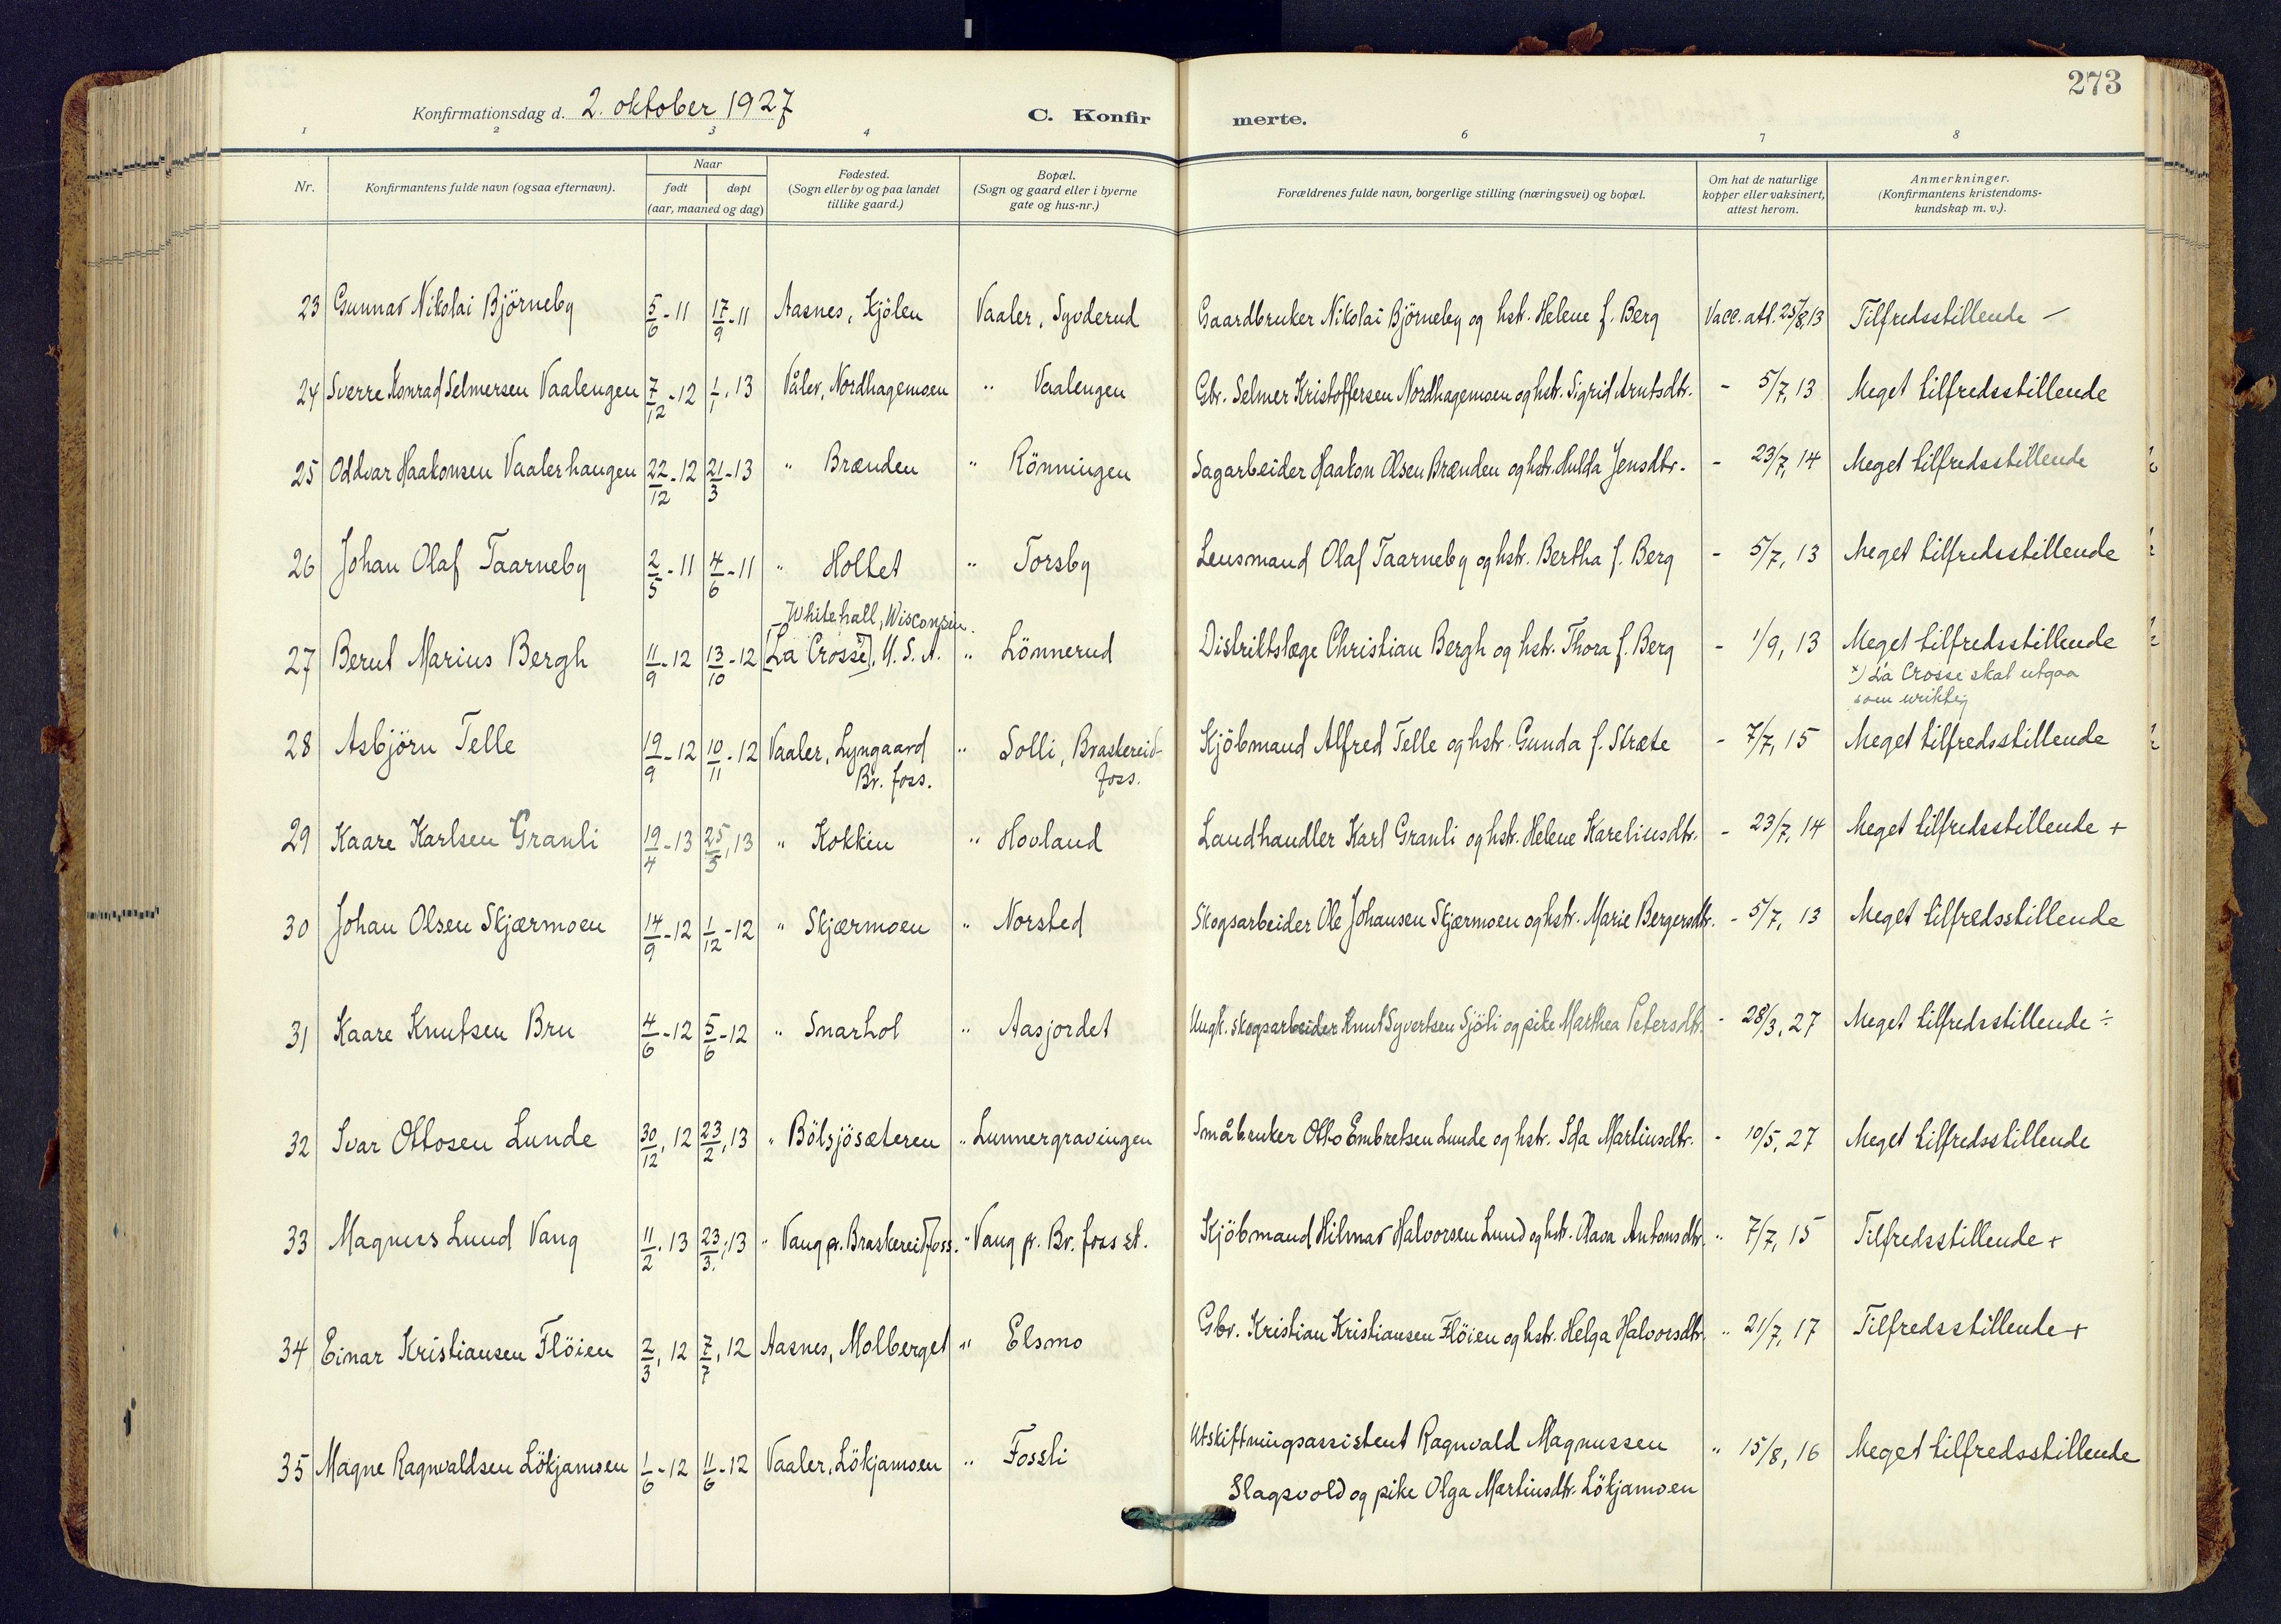 273
Konfirmationsdag d. 2. oktober 1927 C. Konfir merte.
1 2 3 4 6 7 8
Nr. Konfirmantens fulde navn (ogsaa efternavn). Naar født døpt (aar, maaned og dag) Fødested. (Sogn eller by og paa landet tillike gaard.) Bopæl. (Sogn og gaard eller i byerne gate og hus-nr.) Forældrenes fulde navn, borgerlige stilling (næringsvei) og bopæl. Om hat de naturlige kopper eller vaksinert, attest herom. Anmerkninger. (Konfirmantens kristendoms-kundskap m. v.).
23 Gunnar Nikolai Björneby 5/6-11 17/9-11 Aasnes, Kjölen Vaaler, Syvderud Gaardbruker Nikolai Björneby og hstr. Helene f. Berg Vacc. att. 25/8,13 Tilfredsstillende -
24 Sverre Konrad Selmersen Vaalengen 7/12-12 1/1,13 Våler, Nordhagemoen " Vaalengen Gbr. Selmer Kristoffersen Nordhagemoen og hstr. Sigrid Arntsdtr. - 5/7,13 Meget tilfredsstillende
25 Oddvar Haakonsen Vaalerhaugen 22/12-12 21/3-13 " Brænden " Rönningen Sagarbeider Haakon Olsen Brænden og hstr. Hulda Jensdtr. - 23/7,14 Meget tilfredsstillende
26 Johan Olaf Taarneby 2/5-11 4/6-11 " Holtet " Torsby Lensmand Olaf Taarneby og hstr. Bertha f. Berg - 5/7,13 Meget tilfredsstillende
Whitehall, Wisconsin.
27 Bernt Marius Bergh 11/9-12 13/10-12 [La Crosse], U. S. A. " Lönnerud Distriktslæge Christian Bergh og hstr. Thora f. Berg - 1/9,13 Meget tilfredsstillende
x) La Crosse skal utgaa
som uriktig
28 Asbjörn Telle 19/9-12 10/11-12 Vaaler, Lyngaard " Solli, Braskereid- Kjöbmand Alfred Telle og hstr. Gunda f. Stræte - 7/7,15 Meget tilfredsstillende
Br. foss. foss.
29 Kaare Karlsen Granli 19/4-13 25/5,13 " Kokkin " Hovland Landhandler Karl Granli og hstr. Helene Kareliusdtr. - 23/7,14 Meget tilfredsstillende +
30 Johan Olsen Skjærmoen 14/9-12 1/12-12 " Skjærmoen " Norsted Skogsarbeider Ole Johansen Skjærmoen og hstr. Marie Bergersdtr. - 5/7,13 Meget tilfredsstillende
31 Kaare Knutsen Bru 4/6-12 5/6-12 " Snarhol " Aasjordet Ungk. skogsarbeider Knut Syvertsen Sjöli og pike Marthea Petersdtr. - 28/3,27 Meget tilfredsstillende ÷
32 Ivar Ottosen Lunde 30/12,12 23/2,13 " Bölsjösæteren " Lunnergravingen Småbruker Otto Embretsen Lunde og hstr. Ida Martinsdtr. - 10/5,27 Meget tilfredsstillende
33 Magnus Lund Vang 11/2,13 23/3,13 " Vang p. Braskereidfoss. " Vang p. Br. foss st. Kjöbmand Hilmar Halvorsen Lund og hstr. Olava Antonsdtr. " 7/7,15 Tilfredsstillende +
34 Einar Kristiansen Flöien 2/3,12 7/7,12 Aasnes, Molberget " Elsmo Gbr. Kristian Kristiansen Flöien og hstr. Helga Halvorsdtr. " 21/7,17 Tilfredsstillende +
35 Magne Ragnvaldsen Lökjamoen 1/6-12 11/6-12 Vaaler, Lökjamoen " Fossli Utskiftningsassistent Ragnvald Magnussen " 15/8,16 Meget tilfredsstillende
Slagsvold og pike Olga Martinsdtr. Lökjamoen